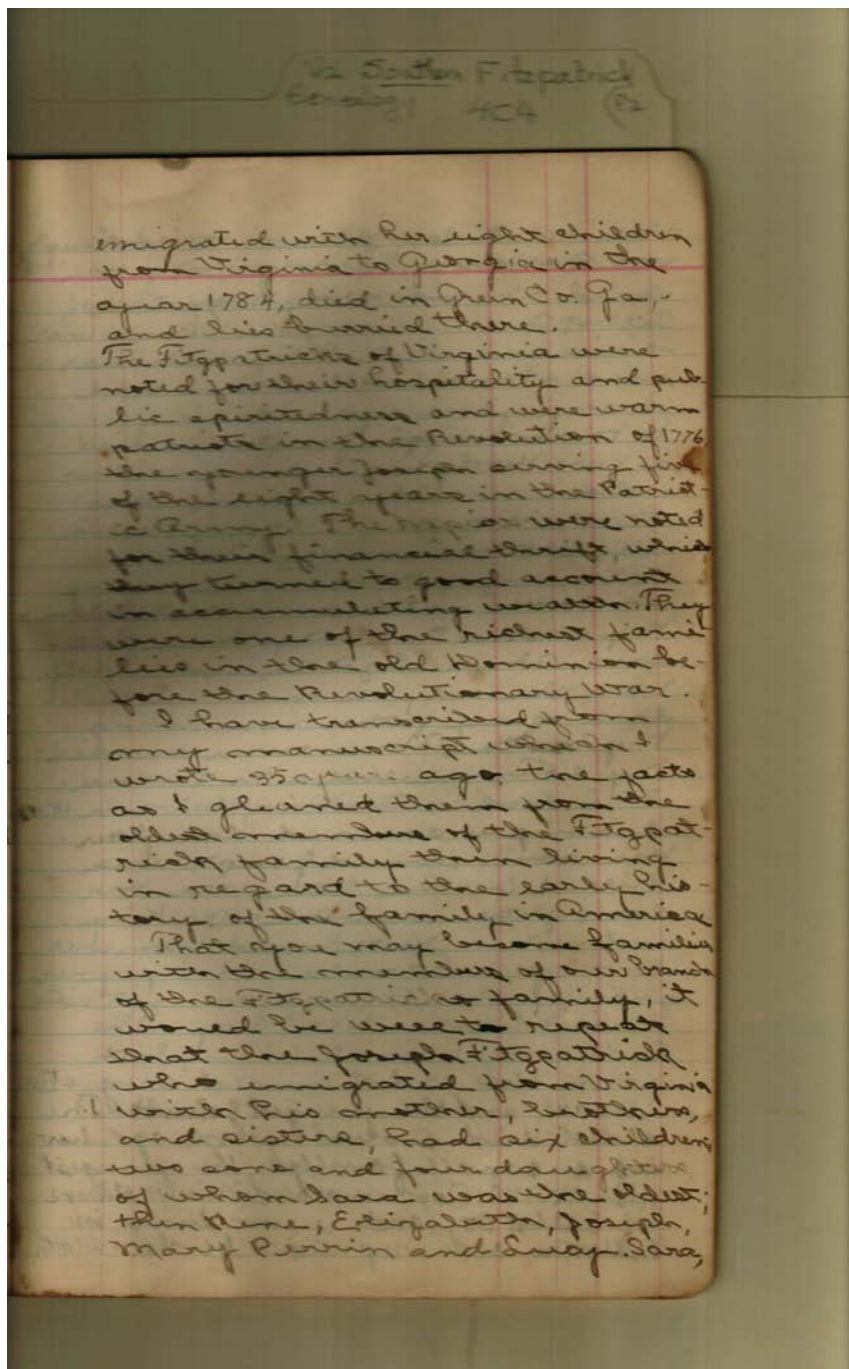 Southern Fitzpatrick
Genealogy 4C4 P2
emigrated with her eight children
from Virginia to Georgia in the
year 1784, died in Green Co. Ga.,
and lies burried there.
The Fitzpatricks of Virginia were
noted for their hospitality and pub-
lic spiritedness and were warm
patriots in the Revolution of 1776
the younger Joseph serving five
of the eight years in the Patriot-
ic Army. The Napiers were noted
for their financial thrift, which
they turned to good account
in accumulating wealth. They
were one of the richest fami
lies in the old Dominion be-
fore the Revolutionary War.
I have transcribed from
my manuscript which I
wrote 35 years ago, the facts
as I gleaned them from the
oldest members of the Fitzpat-
rick family then living
in regard to the early his-
tory of the family in America
That you may become familiar
with the members of our branch
of the Fitzpatricks family, it
would be well to repeat
that the Joseph Fitzpatrick
who emigrated from Virginia
with his mother, brothers,
and sisters, had six children,
two sons and four daughters
of whom Sara was the oldest;
then Rene, Elizabeth, Joseph,
Mary Perrin and Suay. Sara,